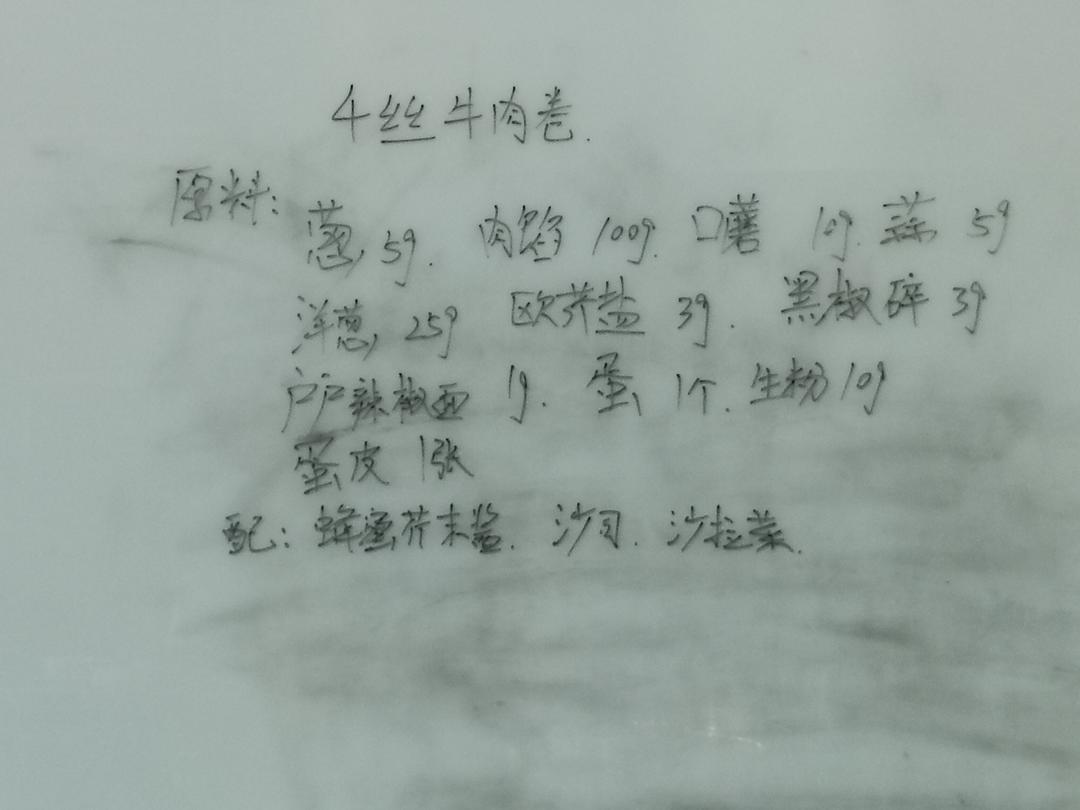 牛丝牛肉卷.
原料:
葱 5g. 肉馅 100g. 口蘑 10g. 蒜 5g
洋葱 25g 欧芹盐 3g. 黑椒碎 3g
户户辣椒面 1g. 蛋 1个. 生粉 10g
蛋皮 1张
配: 蜂蜜芥末酱. 沙司. 沙拉菜.